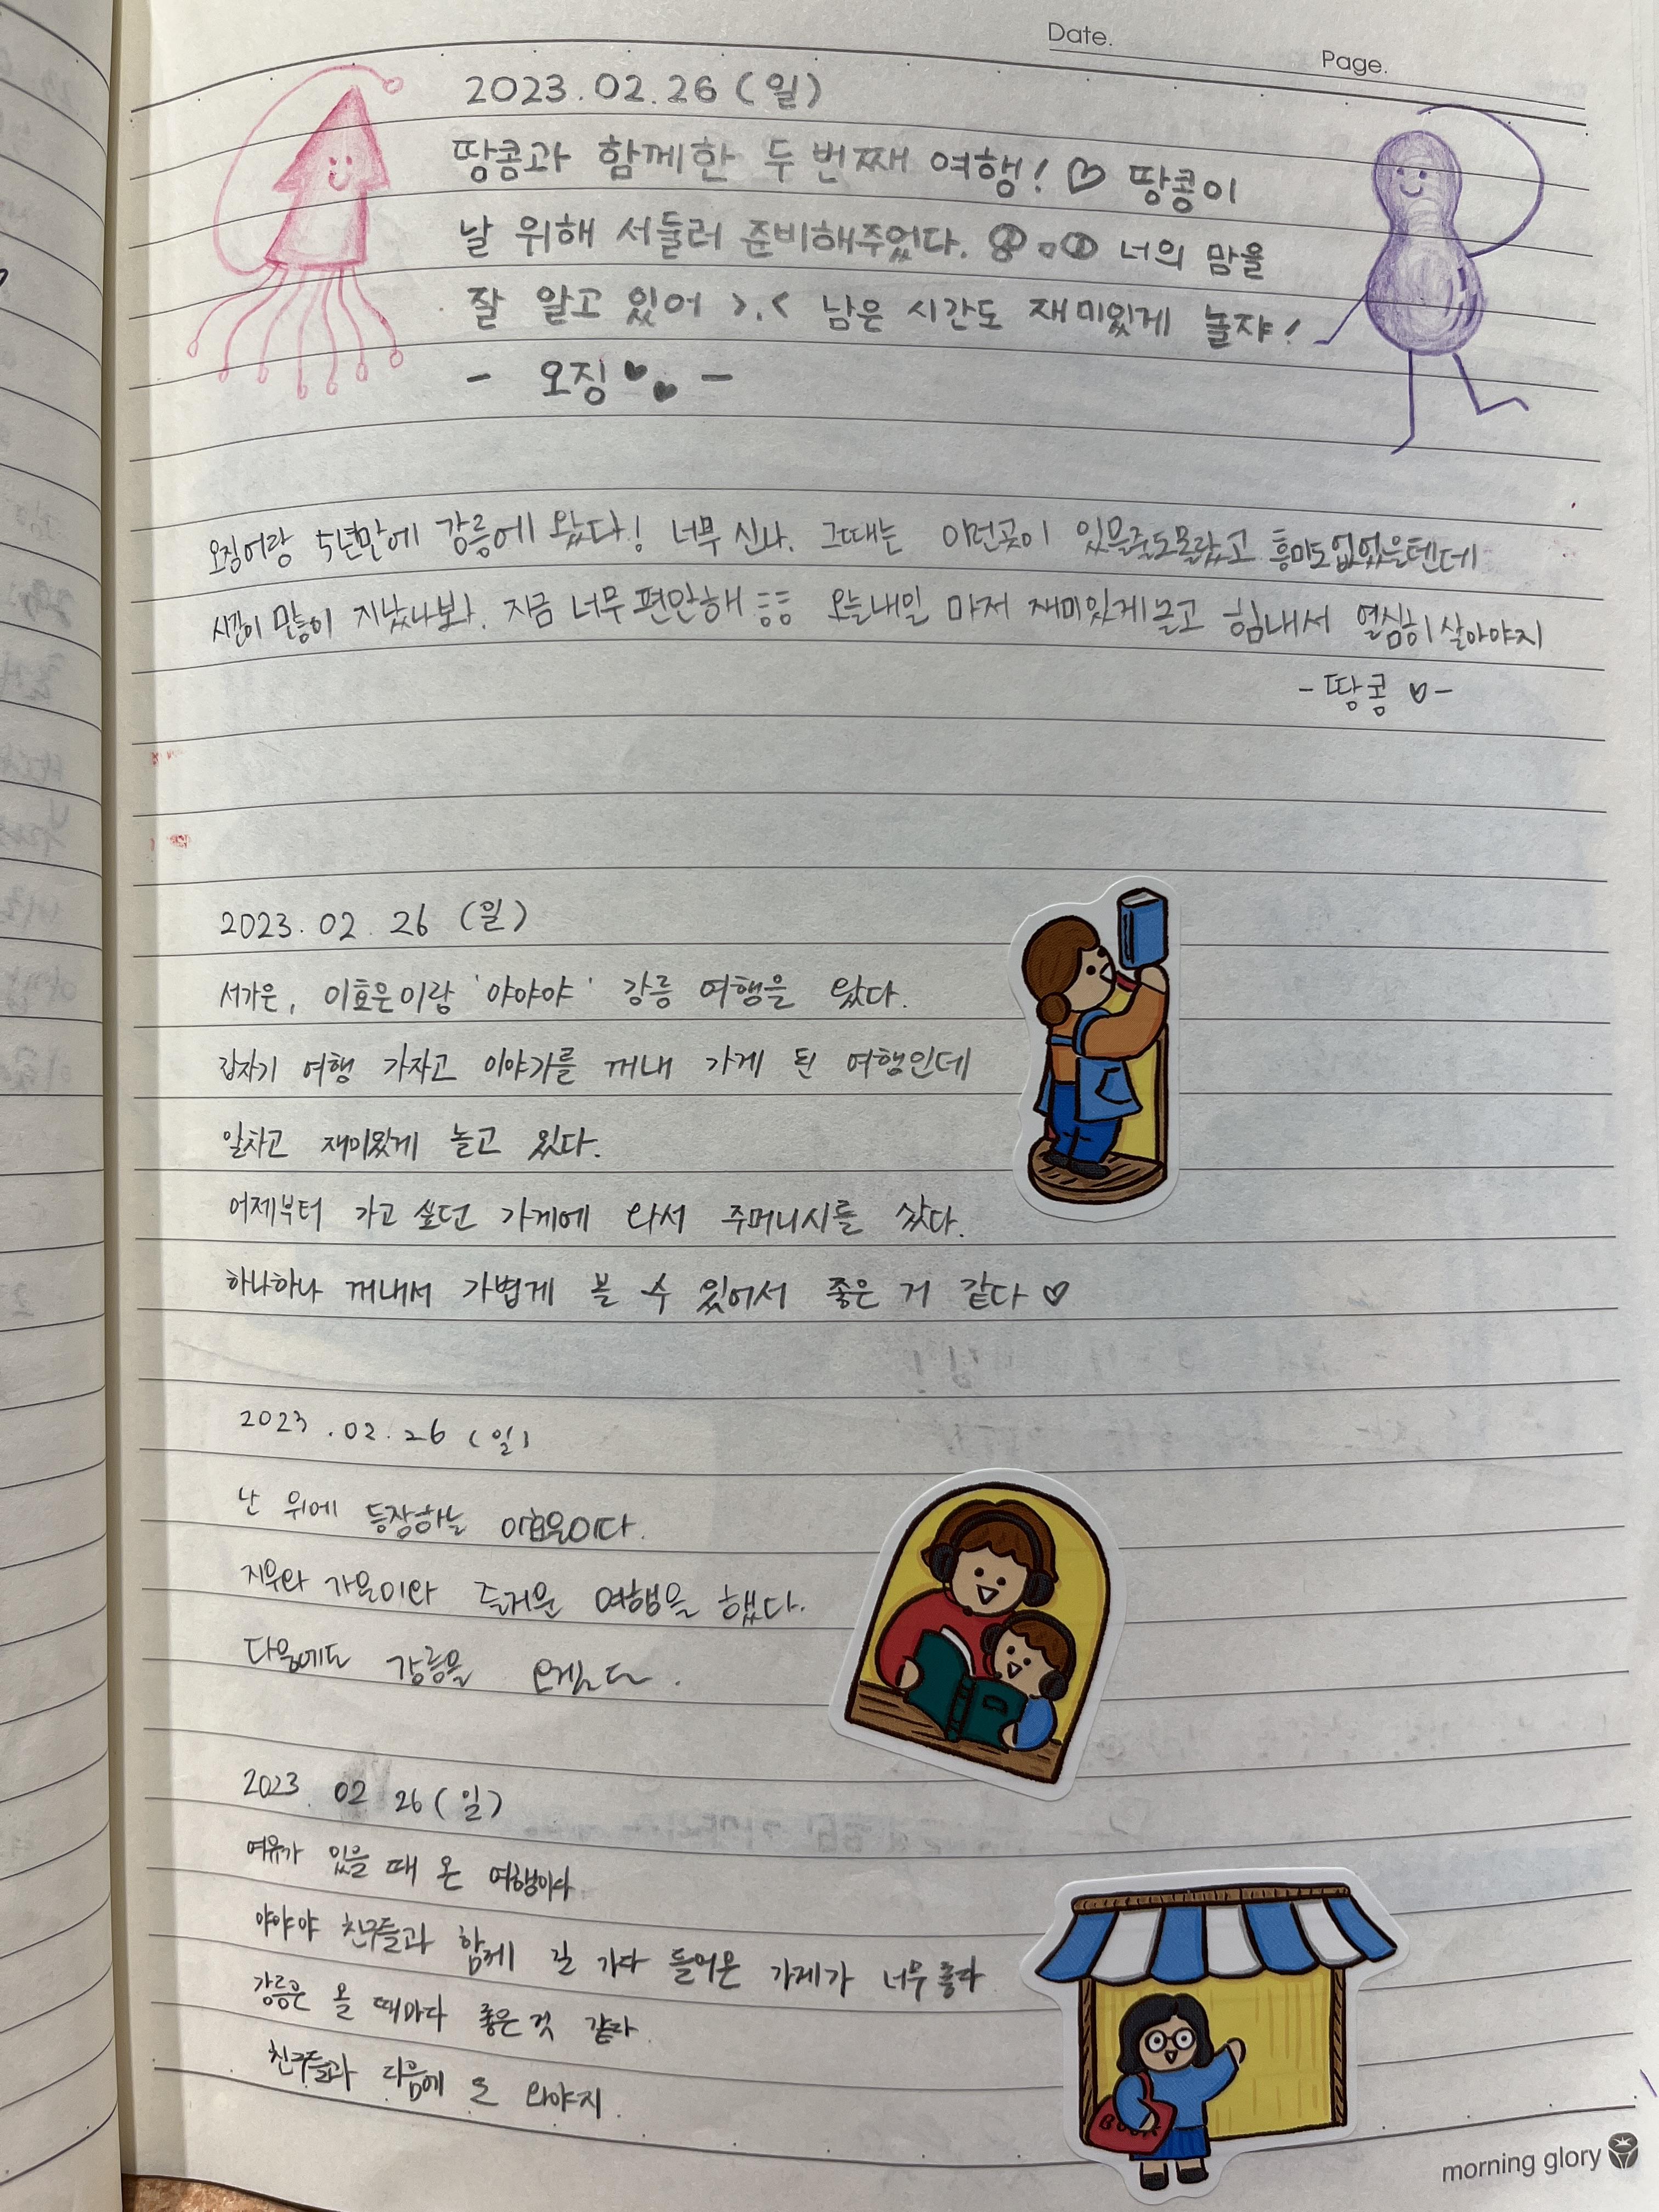 Date.
Page.
2023.02.26 (일)
땅콩과 함께한 두 번째 여행! ♡ 땅콩이
날 위해 서둘러 준비해주었다. 너의 맘을
잘 알고 있어 >.< 남은 시간도 재미있게 놀쟈!
- 오징 ♥♥ -
오징어랑 5년만에 강릉에 왔다! 너무 신나. 그때는 이런곳이 있을줄도몰랐고 흥미도없었을텐데
시간이 많이 지났나봐. 지금 너무 편안해 ΞΞ 오늘내일 마저 재미있게놀고 힘내서 열심히살아야지
- 땅콩 ♡ -
2023. 02. 26 (일)
서가은, 이효은이랑 '야야야' 강릉 여행을 왔다.
갑자기 여행 가자고 이야기를 꺼내 가게 된 여행인데
알차고 재미있게 놀고 있다.
어제부터 가고 싶던 가게에 와서 주머니시를 샀다.
하나하나 꺼내서 가볍게 볼 수 있어서 좋은 거 같다 ♡
2023.02.26 (일)
난 위에 등장하는 이효은이다.
지우와 가은이와 즐거운 여행을 했다.
다음에도 강릉을 오겠다.
2023. 02 26 (일)
여유가 있을 때 온 여행이다
야야야 친구들과 함께 길 가다 들어온 가게가 너무 좋다
강릉은 올 때마다 좋은 것 같다.
친구들과 다음에 또 와야지.
BOOK
morning glory